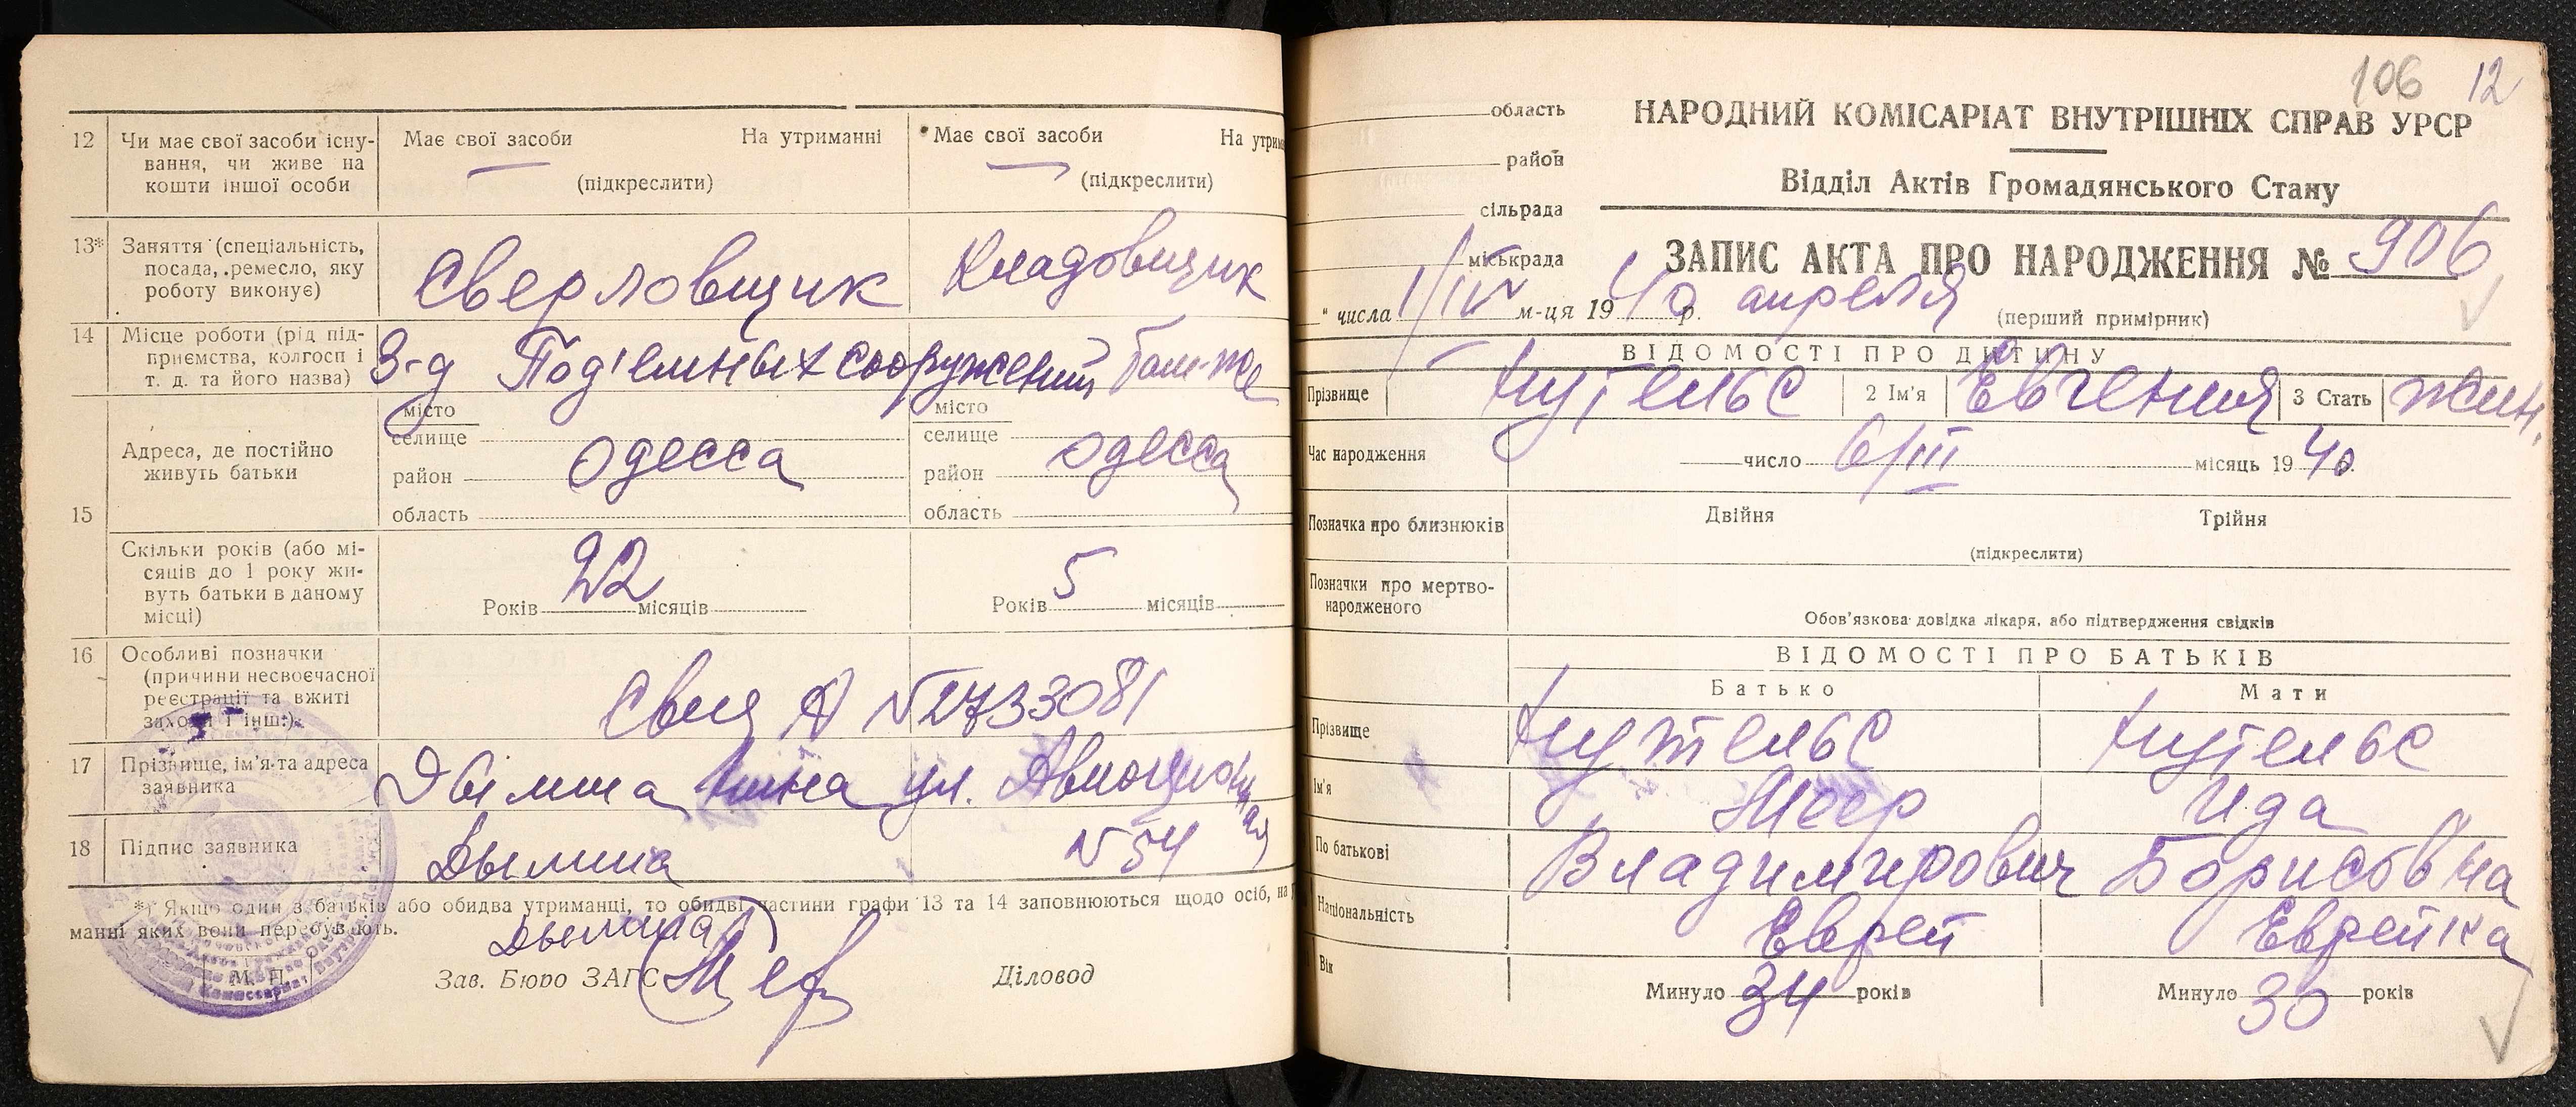 12 Чи має свої засоби існу-
вання, чи живе на
кошти іншої особи
Має свої засоби На утриманні
(підкреслити)
Має свої засоби На утрим
(підкреслити)
13* Заняття (спеціальність,
посада, ремесло, яку
роботу виконує)
Сверловщик
Кладовщик
14 Місце роботи (рід під-
приємства, колгосп і
т. д. та його назва)
З-д Под'емных сооружений
там-же
15 Адреса, де постійно
живуть батьки
місто
селище
район
область
Одесса
місто
селище
район
область
Одесса
Скільки років (або мі-
сяців до 1 року жи-
вуть батьки в даному
місці)
Років 22 місяців
Років 5 місяців
16 Особливі позначки
(причини несвоєчасної
реєстрації та вжиті
заходи і інш.)
А №2733081
17 Прізвище, ім'я та адреса
заявника
ул.
N 54
18 Підпис заявника
Дымша
*) Якщо один з батьків або обидва утриманці, то обидві частини графи 13 та 14 заповнюються щодо осіб, на
манні яких вони перебувають.
М. П.
Зав. Бюро ЗАГС
Діловод
106 12
область
район
сільрада
міськрада
" числа 1/IV м-ця 1940 р. апреля
НАРОДНИЙ КОМІСАРІАТ ВНУТРІШНІХ СПРАВ УРСР
Відділ Актів Громадянського Стану
ЗАПИС АКТА ПРО НАРОДЖЕННЯ № 906
(перший примірник)
ВІДОМОСТІ ПРО ДИТИНУ
Прізвище 2 Ім'я Евгения 3 Стать жин.
Час народження число 6/III місяць 1940.
Позначка про близнюків Двійня Трійня
(підкреслити)
Позначки про мертво-
народженого
Обов'язкова довідка лікаря, або підтвердження свідків
ВІДОМОСТІ ПРО БАТЬКІВ
Батько Мати
Прізвище
Ім'я Меер Ида
По батькові Владимирович Борисовна
Національність Еврей Еврейка
Вік Минуло 34 років Минуло 30 років